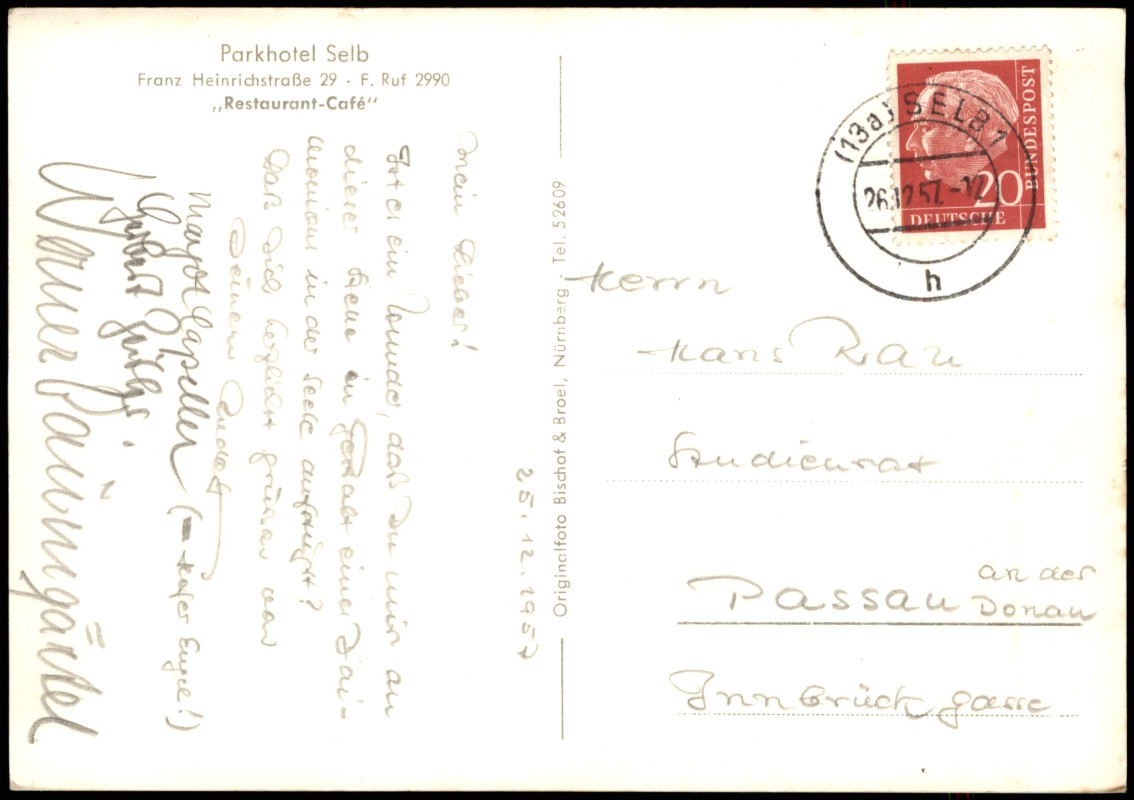 Parkhotel Selb
Franz Heinrichstraße 29 · F. Ruf 2990
„Restaurant-Café"
25.12.1957
Mein Lieber!
Ist es ein Wunder, daß Du mir an
dieser Stelle in Gestalt einer Dai-
monion in der Seele aufsteigst?
Daß Dich herzlichst grüssen von
Deinem
Margot Capeller (– Kaffer Engel!)
Werner Baumgärtel
Originalfoto Bischof & Broel, Nürnberg · Tel. 52609
(13a) SELB 1
26.12.57.-12
h
20
DEUTSCHE
BUNDESPOST
Herrn
Hans Rau
Studienrat
Passau an der Donau
Innbrückgasse